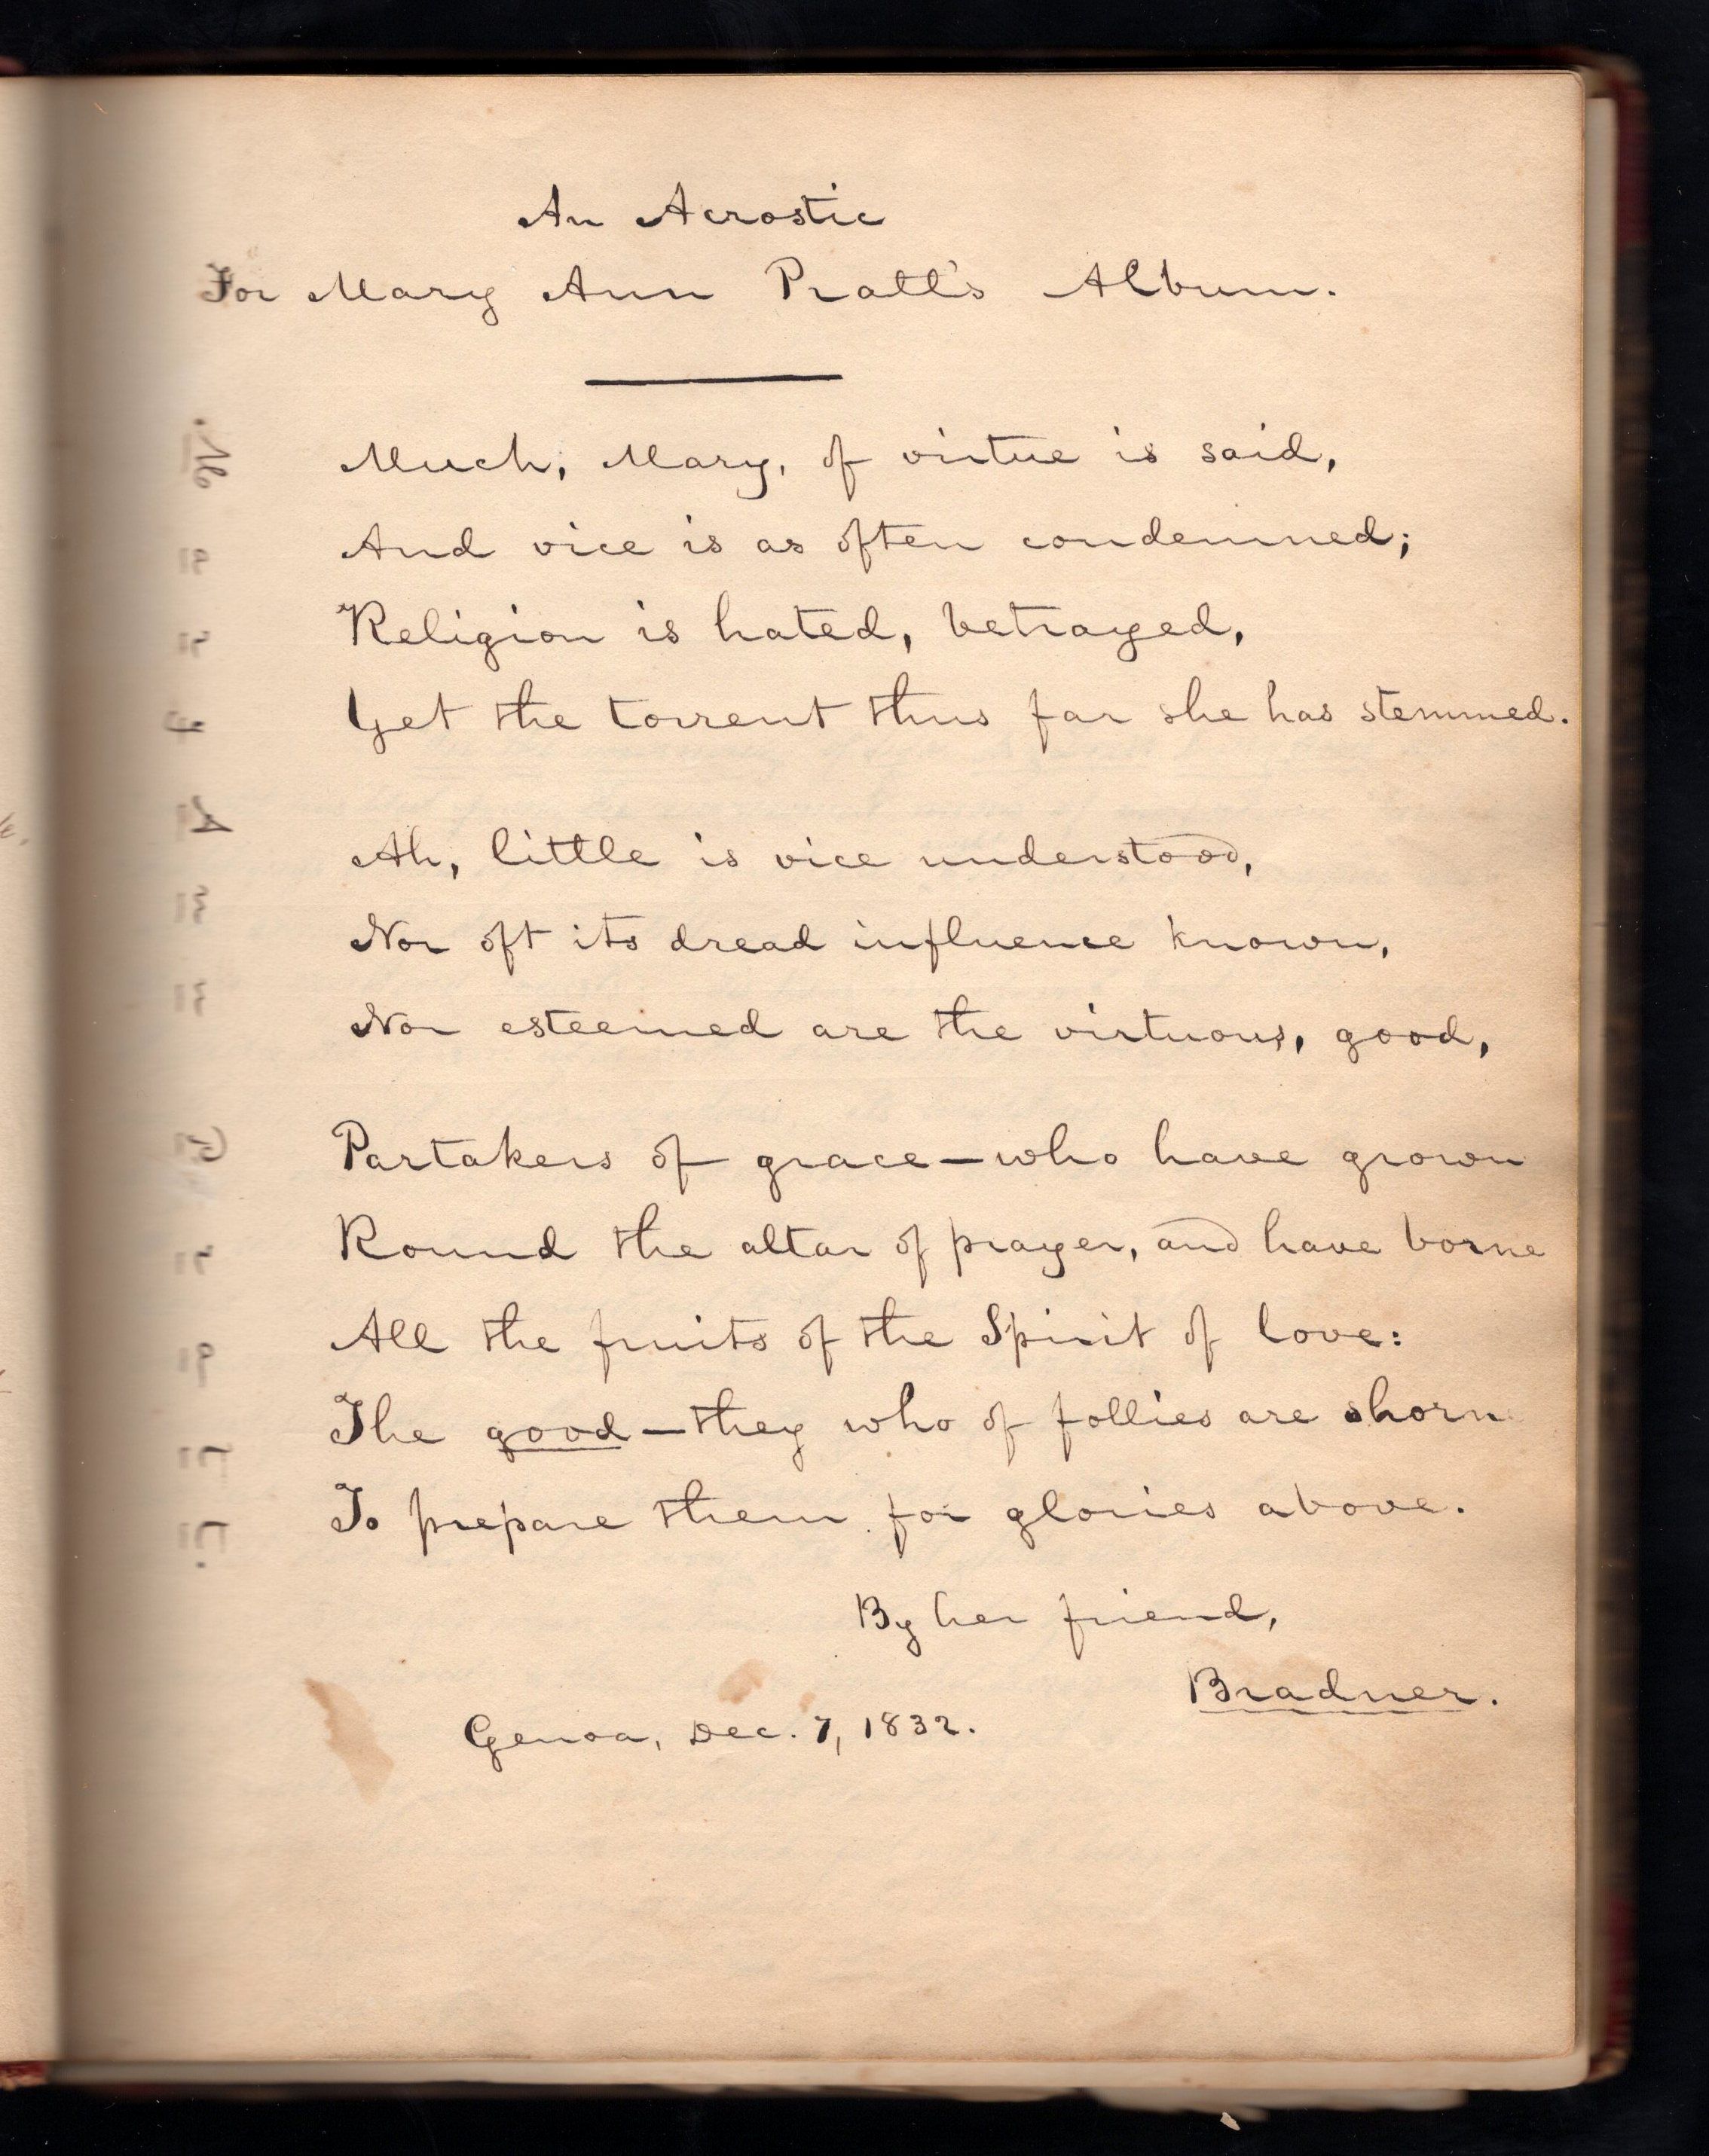 An Acrostic
For Mary Ann Pratt's Album.
Much, Mary, of virtue is said,
And vice is as often condemned;
Religion is hated, betrayed,
Yet the torrent thus far she has stemmed.
Ah, little is vice understood,
Nor oft its dread influence known,
Nor esteemed are the virtuous, good,
Partakers of grace—who have grown
Round the altar of prayer, and have borne
All the fruits of the Spirit of love:
The good—they who of follies are shorn
To prepare them for glories above.
By her friend,
Bradner.
Genoa, Dec. 7, 1832.